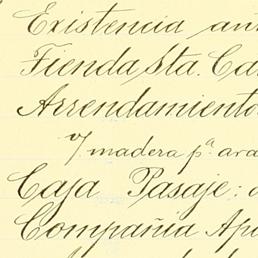 Existencia an
Tienda Sta. Ca
Arrendamiento
y madera pª ara
Caja Pasaje:
Compañia Apo